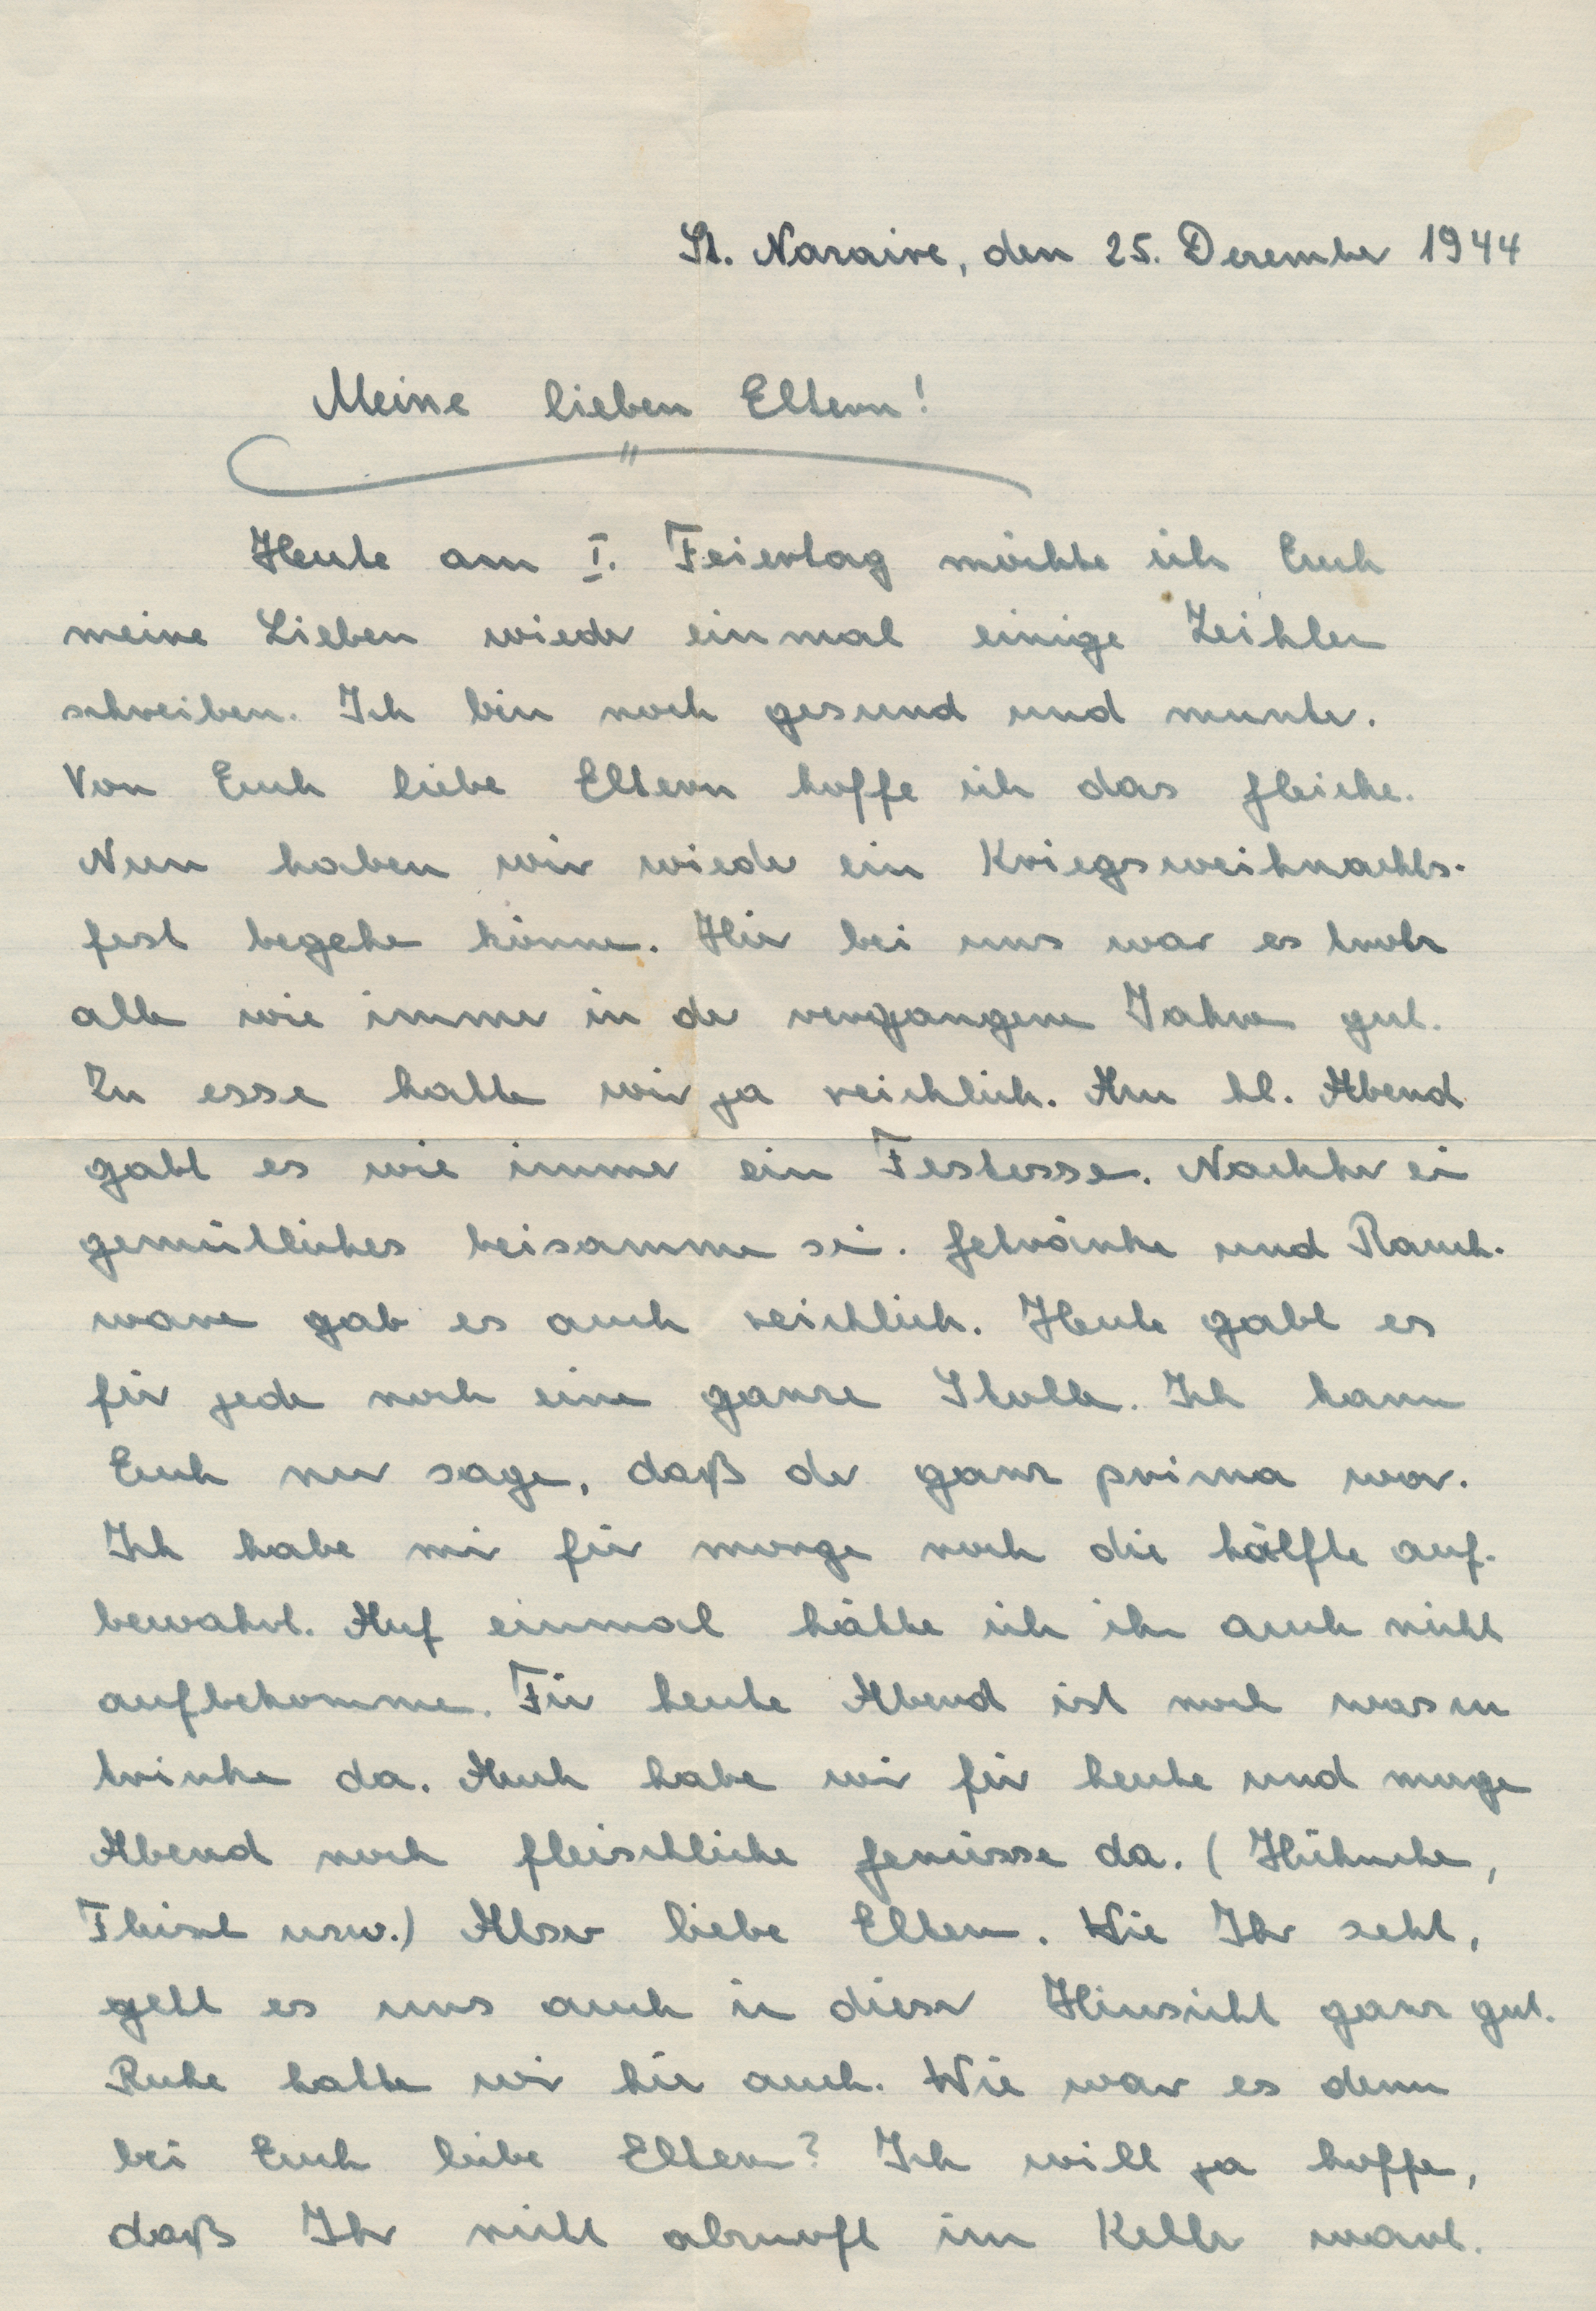 St. Nazaire, den 25. Dezember 1944
Meine lieben Eltern!
Heute am I. Feiertag möchte ich Euch
meine Lieben wieder einmal einige Zeihlen
schreiben. Ich bin noch gesund und munter.
Von Euch liebe Eltern hoffe ich das gleiche.
Nun haben wir wieder ein Kriegsweihnachts-
fest begehen können. Hier bei uns war es trotz
allem wie immer in den vergangenen Jahren gut.
Zu essen hatten wir ja reichlich. Am hl. Abend
gabt es wie immer ein Festessen. Nachher ein
gemütliches beisammen sein. Getränke und Rauch-
waren gab es auch reichlich. Heute gabt es
für jeden noch einen ganzen Stollen. Ich kann
Euch nur sagen, daß der ganz prima war.
Ich habe mir für morgen noch die hälfte auf-
bewahrt. Auf einmal hätte ich ihn auch nicht
aufbekommen. Für heute Abend ist noch was zu
trinken da. Auch haben wir für heute und morgen
Abend noch fleischliche Genüsse da. (Hühnchen,
Fleisch usw.) Also liebe Eltern. Wie Ihr seht,
geht es uns auch in dieser Hinsicht ganz gut.
Ruhe hatten wir hier auch. Wie war es denn
bei Euch liebe Eltern? Ich will ja hoffen,
daß Ihr nicht alzuoft im Keller wart.